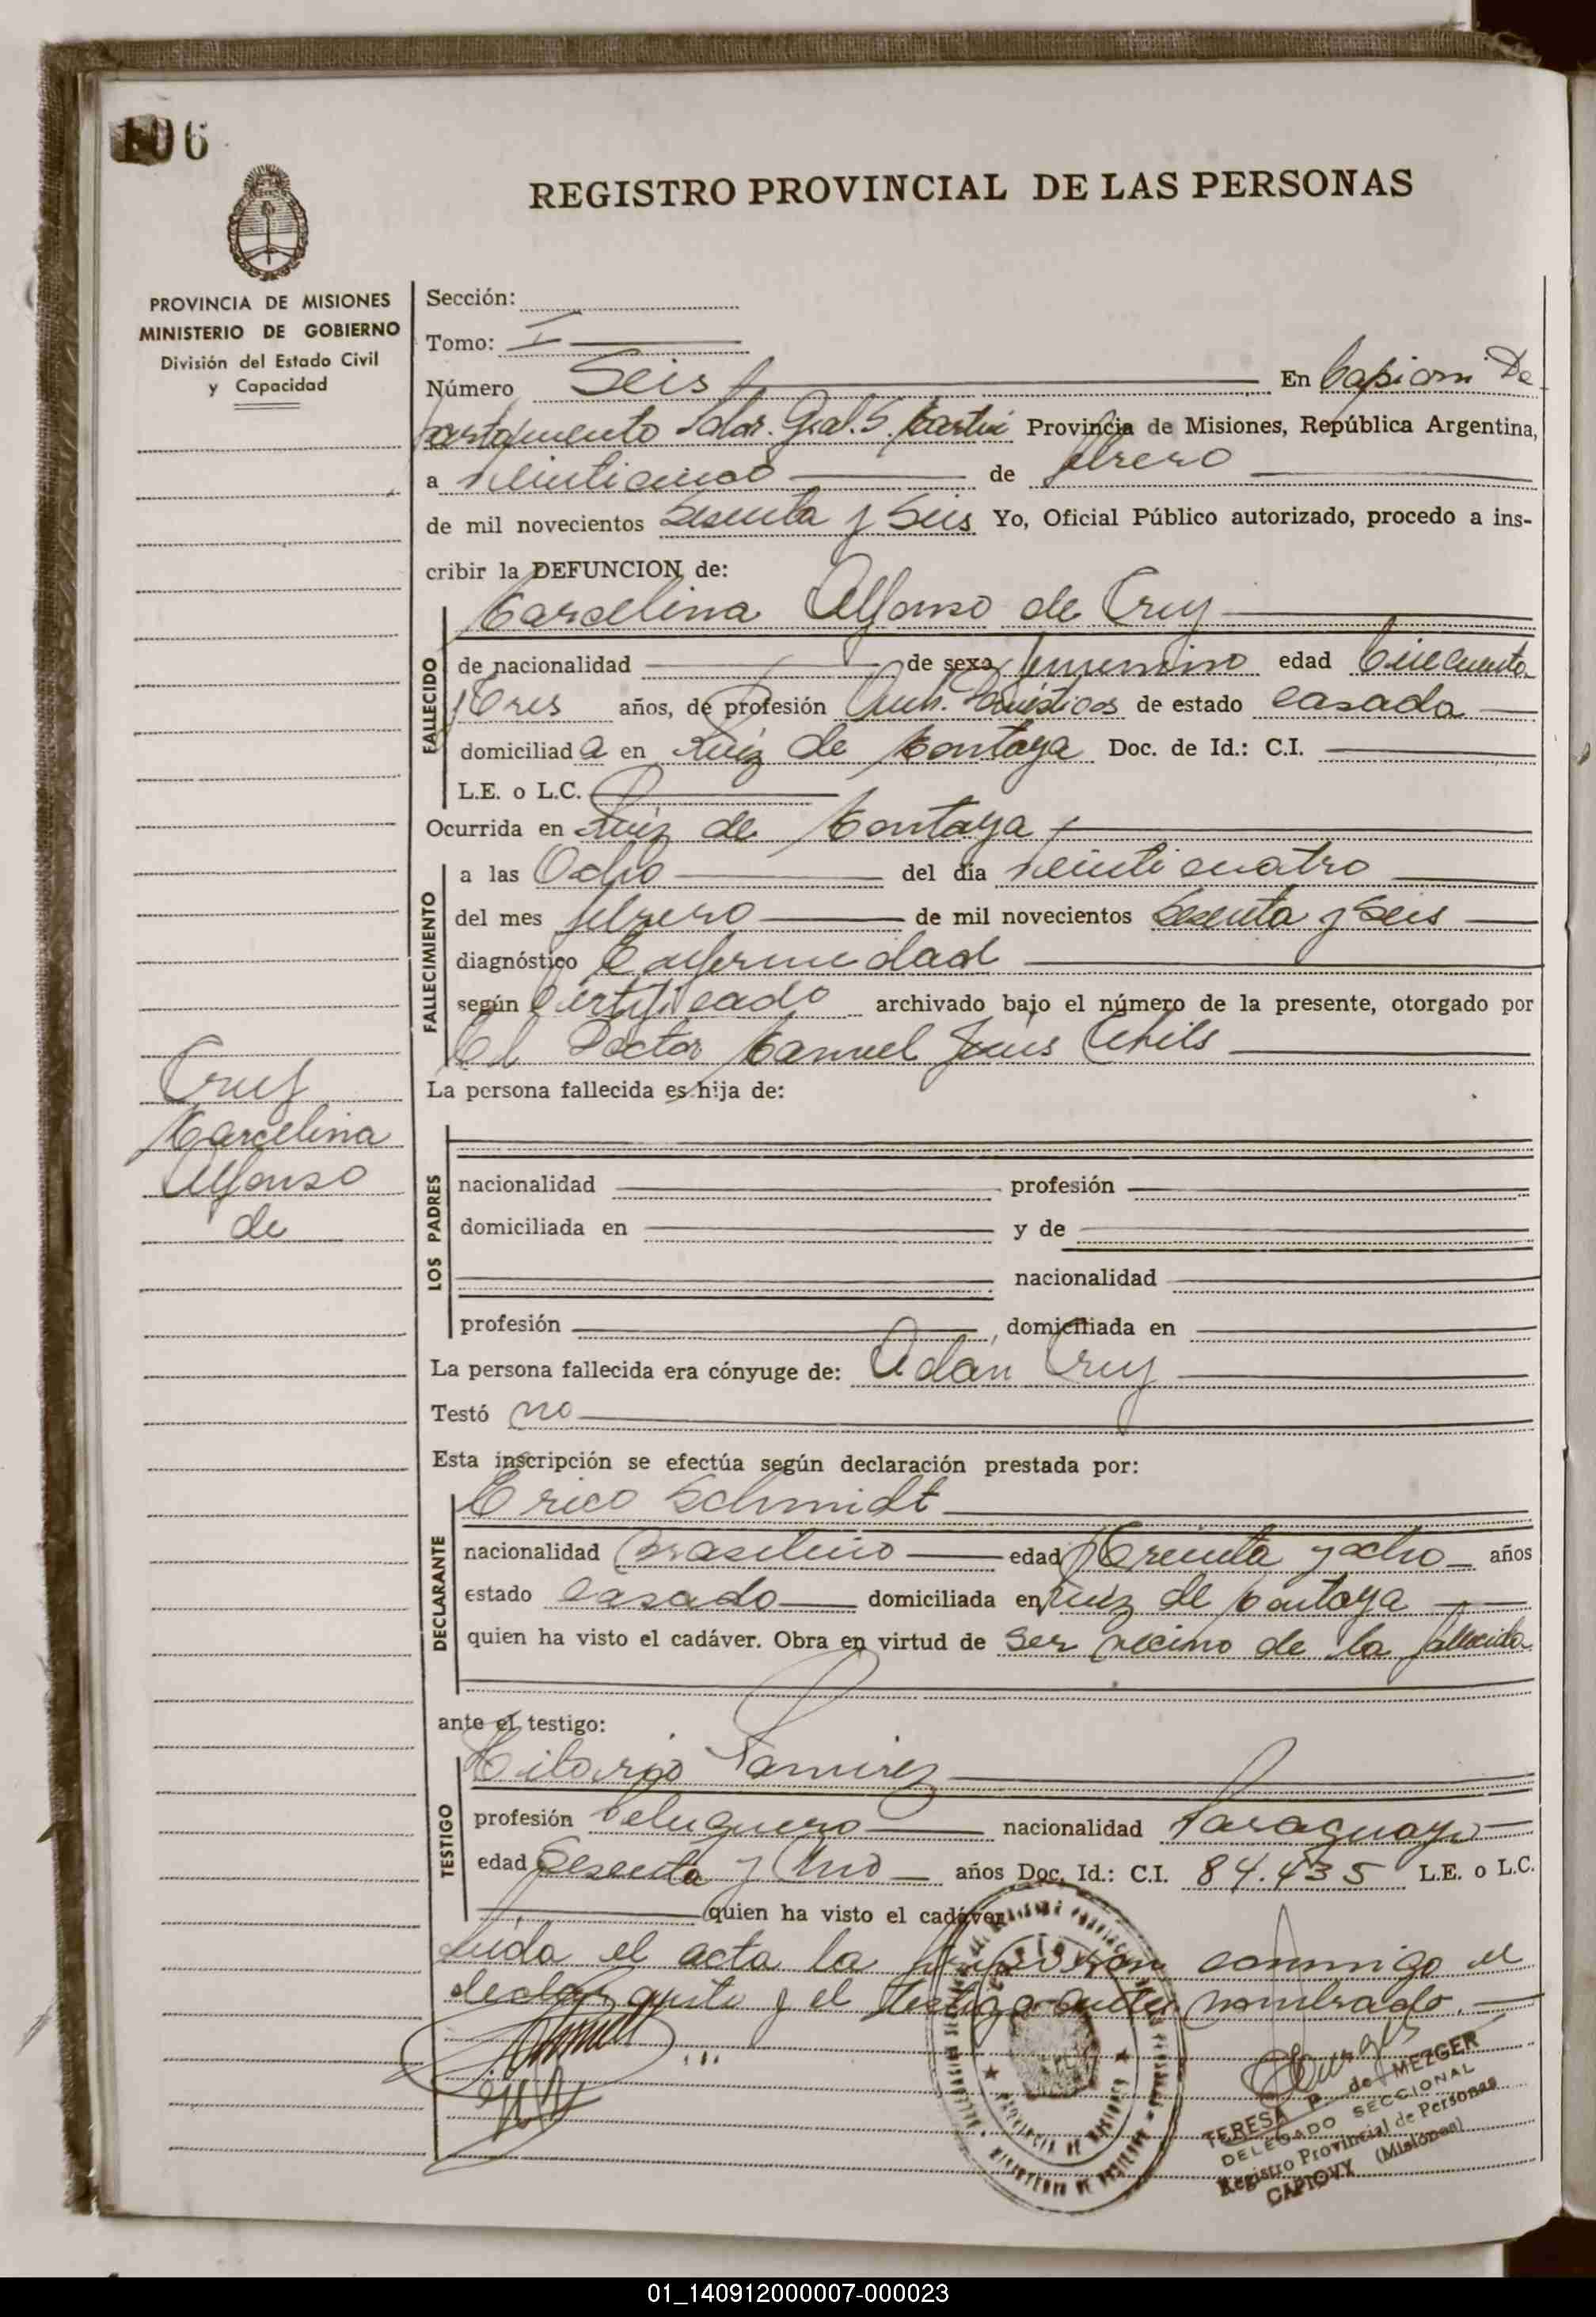 106
REGISTRO PROVINCIAL DE LAS PERSONAS
PROVINCIA DE MISIONES
MINISTERIO DE GOBIERNO
División del Estado Civil
y Capacidad
Sección:
Tomo: I
Número Seis En Capiovi De
partamento Ldor. Gral. S. Martín Provincia de Misiones, República Argentina,
a veinticinco de febrero
de mil novecientos Sesenta y Seis Yo, Oficial Público autorizado, procedo a ins-
cribir la DEFUNCION de:
Marcelina Alfonso de Cruz
FALLECIDO
de nacionalidad de sexo femenino edad Cincuenta
y Tres años, de profesión Queh. Domésticos de estado casada
domiciliad a en Ruiz de Montoya Doc. de Id.: C.I.
L.E. o L.C.
Ocurrida en Ruiz de Montoya
FALLECIMIENTO
a las Ocho del día veinticuatro
del mes febrero de mil novecientos Sesenta y Seis
diagnóstico Enfermedad
según Certificado archivado bajo el número de la presente, otorgado por
El Doctor Manuel Jesús
La persona fallecida es hija de:
Cruz
Marcelina
Alfonso
de
LOS PADRES
nacionalidad profesión
domiciliada en y de
nacionalidad
profesión , domiciliada en
La persona fallecida era cónyuge de: Adán Cruz
Testó no
Esta inscripción se efectúa según declaración prestada por:
Erico Schmidt
DECLARANTE
nacionalidad Brasileño edad Treinta y ocho años
estado casado domiciliada en Ruiz de Montoya
quien ha visto el cadáver. Obra en virtud de ser vecino de la fallecida
ante el testigo:
Hilario Ramirez
TESTIGO
profesión Peluquero nacionalidad Paraguayo
edad Sesenta y Uno años Doc. Id.: C.I. 84.435 L.E. o L.C.
quien ha visto el cadáver
Leída el acta la firman conmigo el
declarante y el testigo antes nombrado.
TERESA P. de MEZGER
DELEGADO SECCIONAL
Registro Provincial de Personas
CAPIOVY (Misiones)
PROVINCIA DE MISIONES
01_140912000007-000023